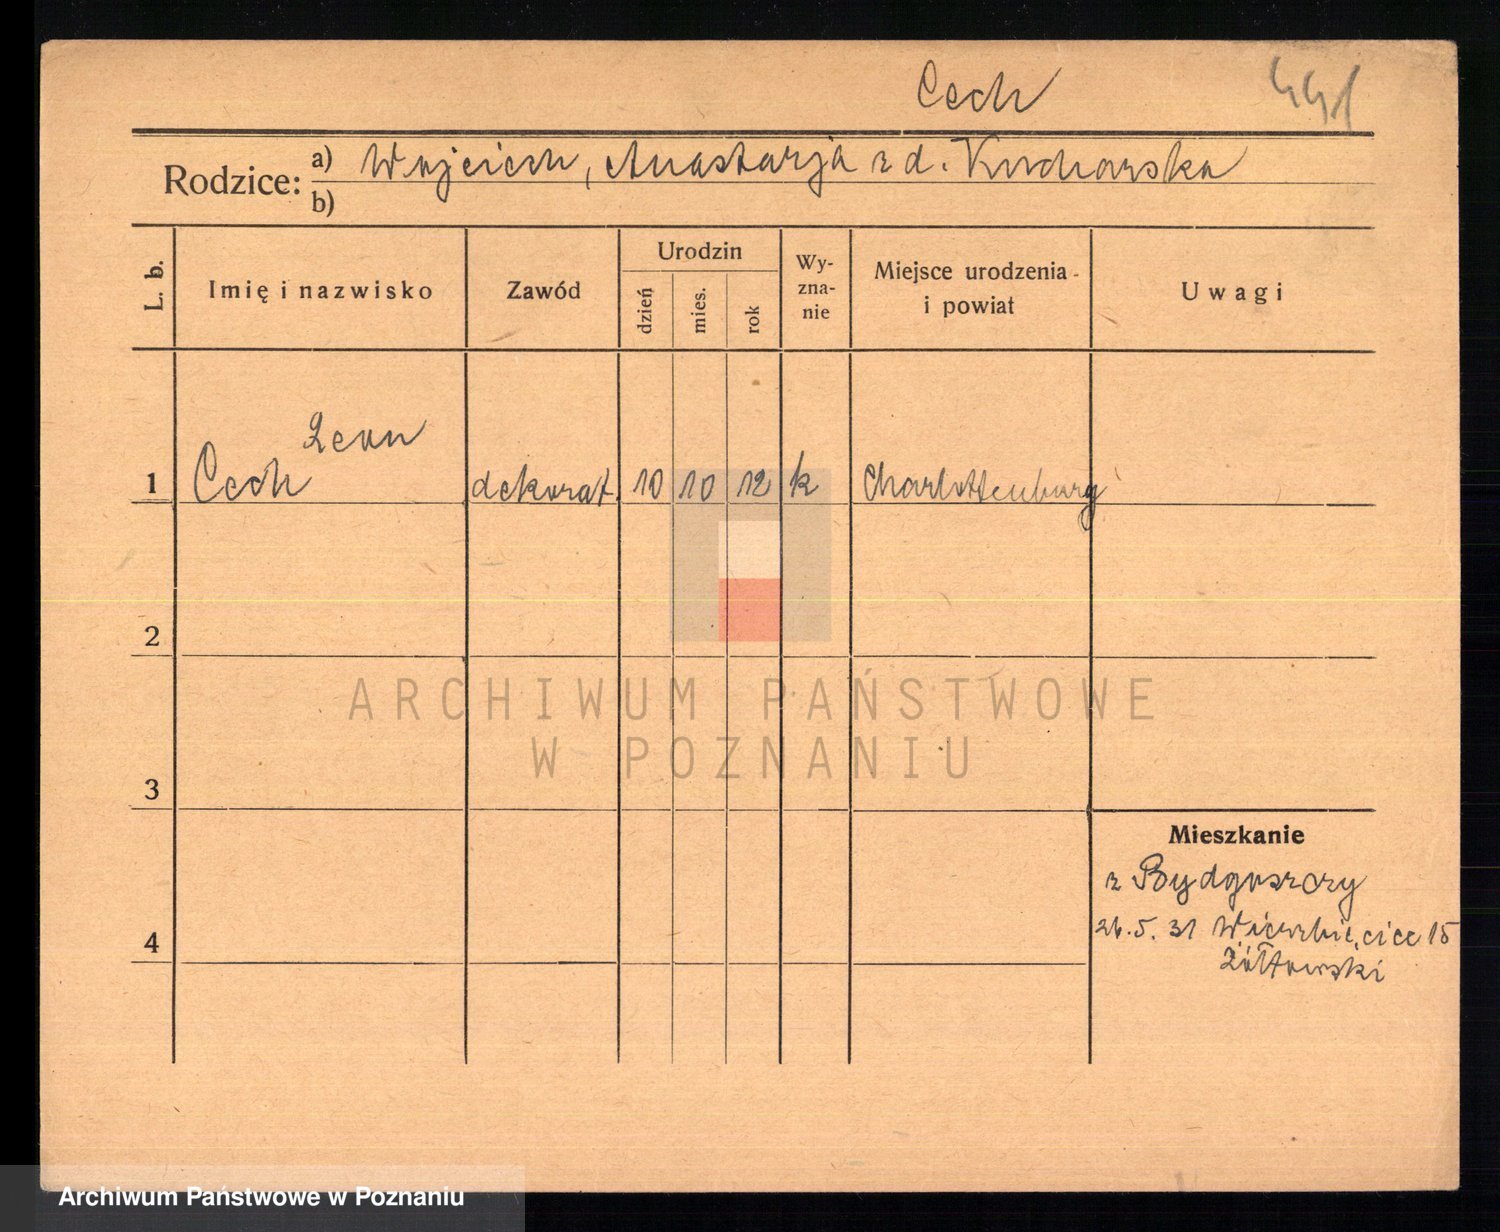 Cech 441
Rodzice: a) Wojciech, Anastazja z d. Kucharska
b)
L. b. Imię i nazwisko Zawód Urodzin dzień mies. rok Wy-zna-nie Miejsce urodzenia i powiat Uwagi
1 Cech Leon dekorat. 10 10 12 k Charlottenburg
2
3
Mieszkanie
z Bydgoszczy
26.5.31 Wierzbięcice 15
4
Żółtowski
ARCHIWUM PAŃSTWOWE
W POZNANIU
Archiwum Państwowe w Poznaniu